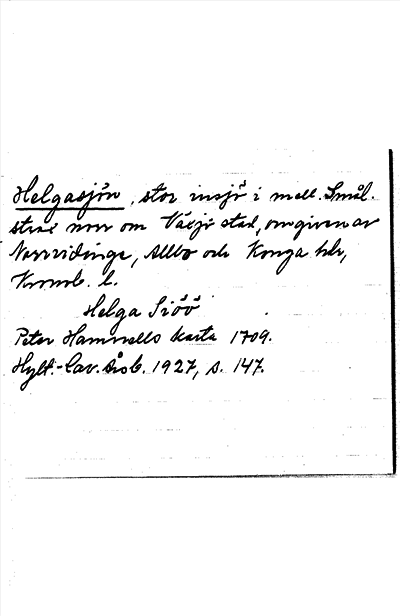 Helgasjön, stor insjö i mell. Små-
strax norr om Växjö stad, omgiven av
Norrvidinge, Allbo och Konga hdr,
Kronob. l.
Helga Siöö
Peter Hammells karta 1709.
Hylt.-Cav. årsb. 1927, s. 147.